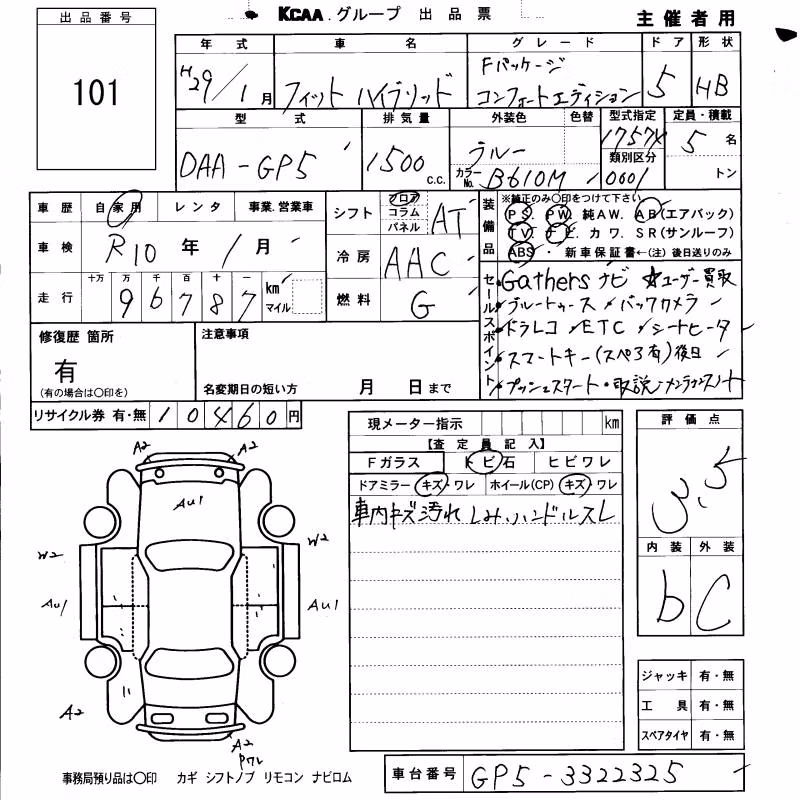 KCAA.グループ 出品票
主催者用
出品番号
101
年式 車名 グレード ドア 形状
H29/1月 フィット ハイブリッド Fパッケージ コンフォートエディション 5 HB
型式 排気量 外装色 色替 型式指定 定員・積載
DAA-GP5 1500 c.c. ブルー 17574 5名
カラーNo. B610M 類別区分 0601 トン
車歴 自家用 レンタ 事業.営業車
シフト フロア コラム パネル AT
装備品 ※純正のみ〇印をつけて下さい
PS. PW. 純AW. AB(エアバック)
TV. ナビ カワ. SR(サンルーフ)
ABS・ 新車保証書←(注) 後日送りのみ
車検 R10年/月
冷房 AAC
走行 十万 万 千 百 十 一
96787 km マイル
燃料 G
セールスポイント
Gathersナビ ☆ユーザー買取
ブルートゥース バックカメラ
ドラレコ ETC シートヒータ
スマートキー(スペア有)後日
プッシュスタート・取説 メンテナンスノート
修復歴 箇所
有
(有の場合は〇印を)
注意事項
名変期日の短い方 月 日まで
リサイクル券 有・無 10460円
現メーター指示 km
【査定員記入】
Fガラス トビ石 ヒビワレ
ドアミラー キズ・ワレ ホイール(CP) キズ・ワレ
車内キズ汚れ しみ、ハンドルスレ
評価点
3.5
内装 外装
b C
A2 A2
AU1
W2 W2
AU1 AU1
A2
A2
Pワレ
ジャッキ 有・無
工具 有・無
スペアタイヤ 有・無
事務局預り品は〇印 カギ シフトノブ リモコン ナビロム
車台番号 GP5-3322325